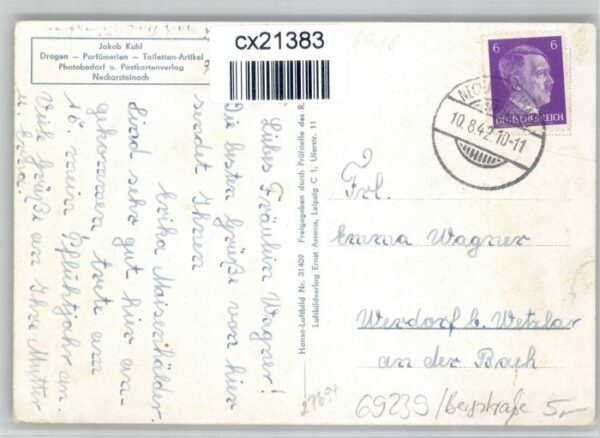 Jakob Kuhl
Drogen – Parfümerien – Toiletten-Artikel
Photobedarf u. Postkartenverlag
Neckarsteinach
cx21383
6918
6 6
DEUTSCHES REICH
10.8.42 10-11
Liebes Fräulein Wagner!
Die besten Grüße von hier
sendet Ihnen
Erika Maisenhälder.
Sind sehr gut hier an-
gekommen trete am
16. mein Pflichtjahr an.
Viele Grüße an Ihre Mutter
Hansa-Luftbild Nr. 31409 Freigegeben durch Prüfstelle des R.
Luftbildverlag Ernst Assmus, Leipzig C 1, Uferstr. 11
Frl.
Emma Wagner
Werdorf b. Wetzlar
an der Bach
69239/Bergstraße 5,-